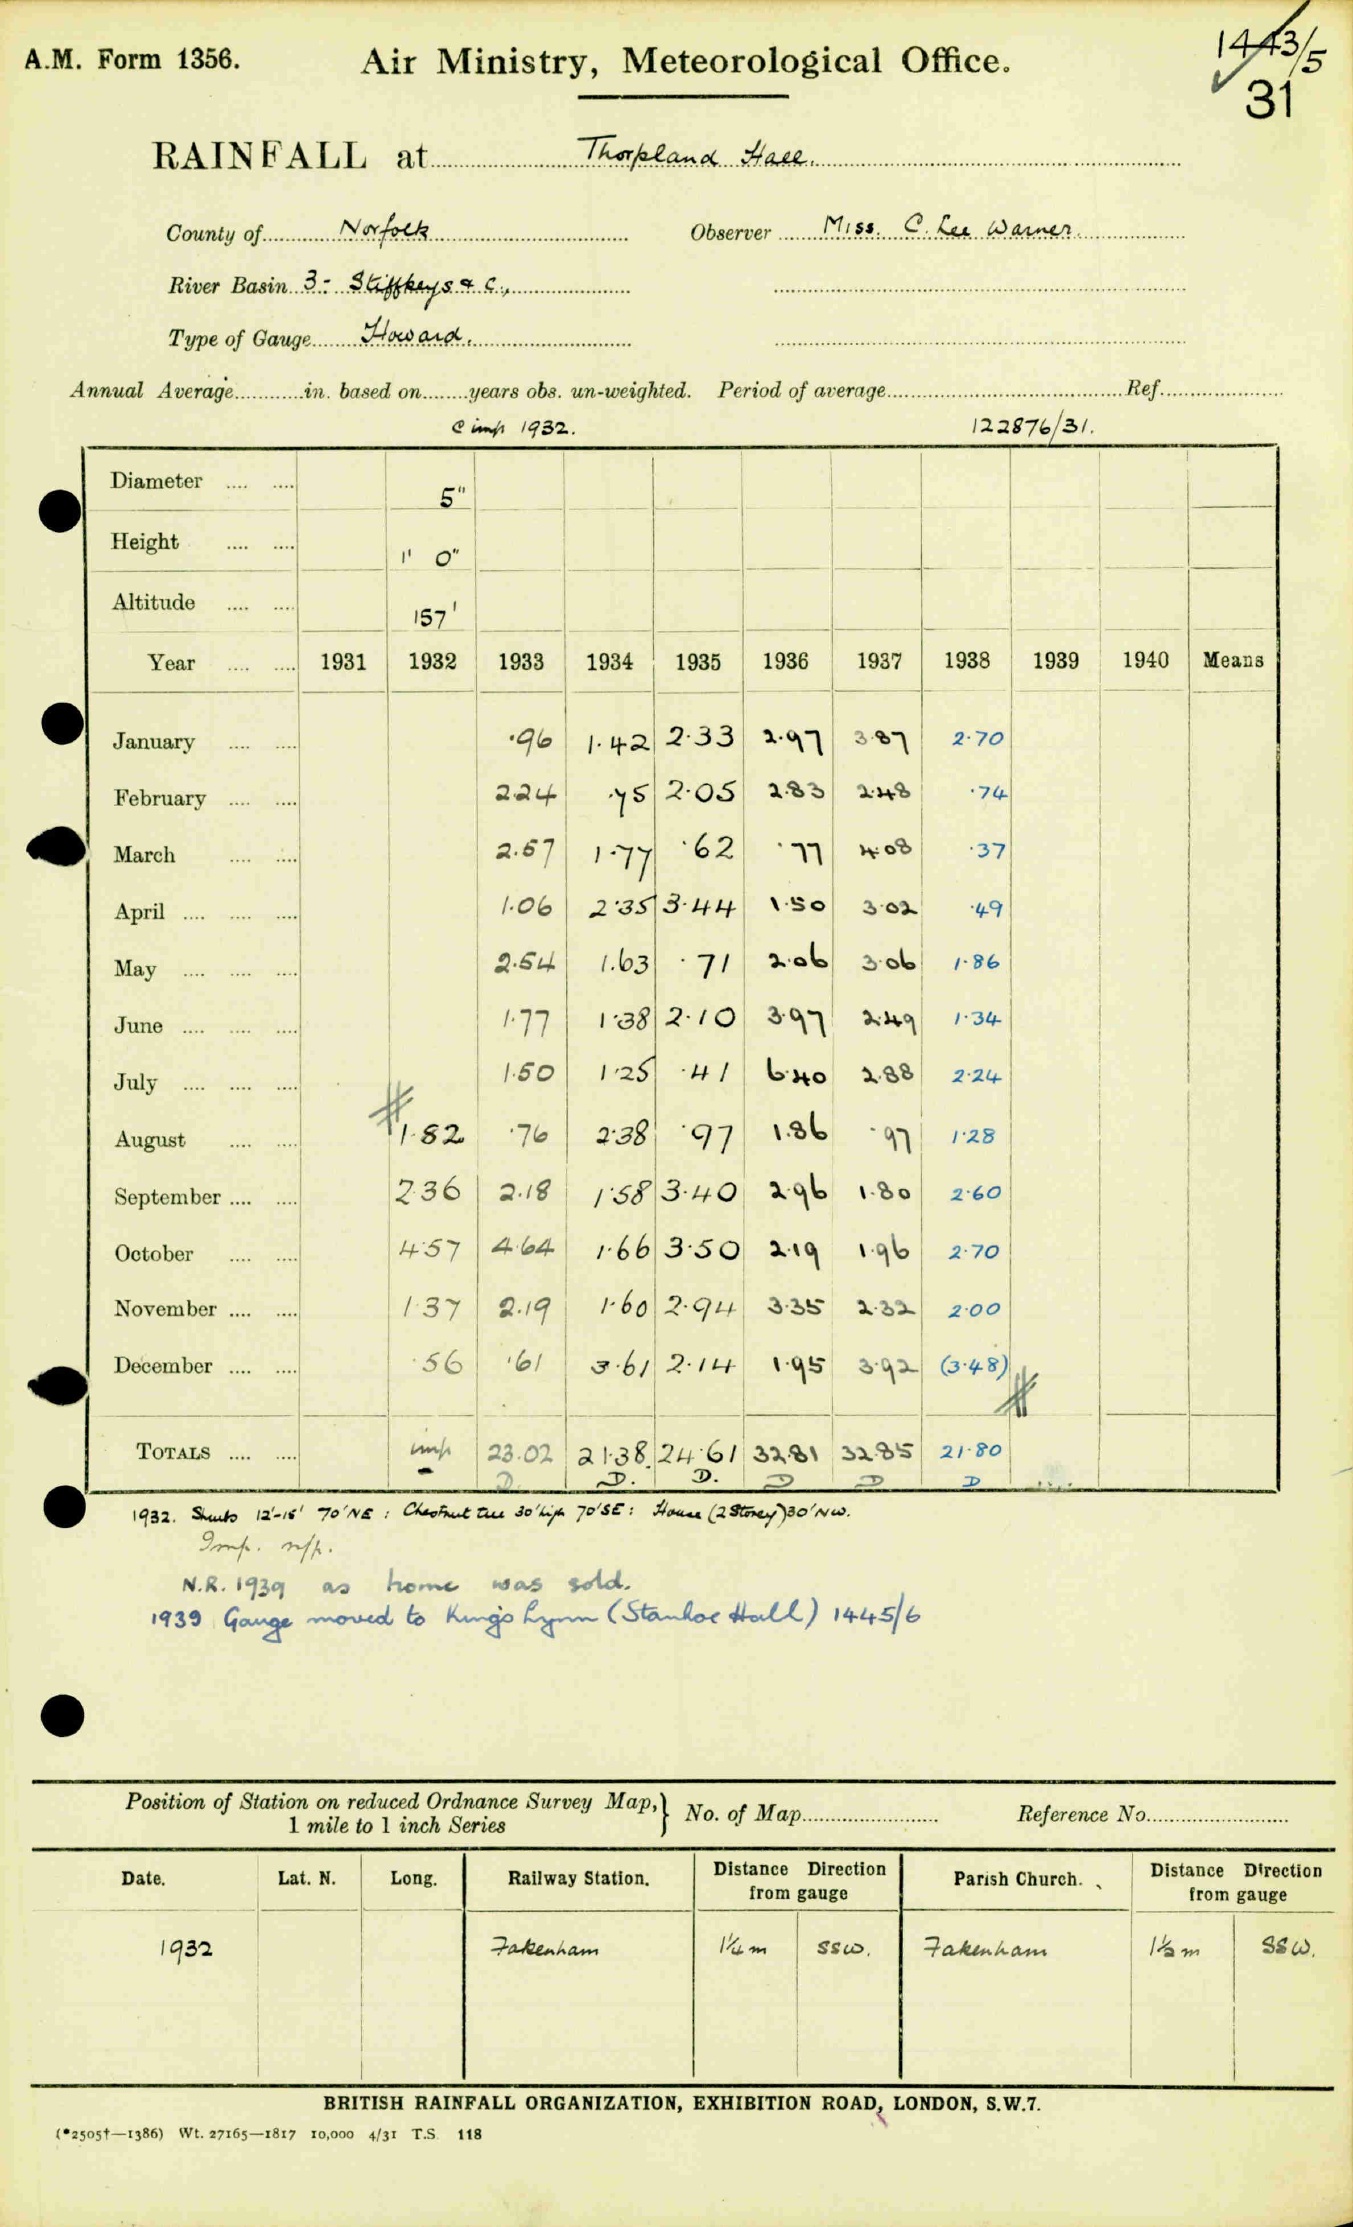 A.M. Form 1356.
Air Ministry, Meteorological Office.
1443/5
31
RAINFALL at Thorpland Hall.
County of Norfolk Observer Miss. C. Lee Warner.
River Basin 3:- Stiffkeys & c.,
Type of Gauge Howard.
Annual Average in. based on years obs. un-weighted. Period of average Ref.
c imp 1932. 122876/31.
Diameter .... .... 5"
Height .... .... 1' 0"
Altitude .... .... 157'
Year .... .... 1931 1932 1933 1934 1935 1936 1937 1938 1939 1940 Means
January .... .... ·96 1·42 2·33 2·97 3·87 2·70
February .... .... 2.24 ·75 2·05 2.83 2.48 ·74
March .... .... 2.57 1·77 ·62 ·77 4·08 ·37
April .... .... .... 1.06 2·35 3·44 1·50 3·02 ·49
May .... .... .... 2.54 1.63 ·71 2·06 3·06 1·86
June .... .... .... 1·77 1·38 2·10 3·97 2·49 1·34
July .... .... .... 1.50 1·25 ·41 6·40 2·88 2·24
August .... .... 1·82 ·76 2·38 ·97 1·86 ·97 1·28
September .... .... 2.36 2.18 1·58 3·40 2·96 1·80 2·60
October .... .... 4·57 4·64 1·66 3·50 2·19 1·96 2·70
November .... .... 1·37 2.19 1·60 2·94 3·35 2·32 2·00
December .... .... ·56 ·61 3·61 2·14 1·95 3·92 (3·48)
TOTALS .... .... imp 23.02 21·38. 24·61 32·81 32·85 21·80
D. D. D. D D D
1932. Shrubs 12'-15' 70'NE : Chestnut tree 30'high 70'SE : House (2 Storey) 30'NW.
Imp. n/p.
N.R. 1939 as home was sold.
1939 Gauge moved to King's Lynn (Stanhoe Hall) 1445/6
Position of Station on reduced Ordnance Survey Map, } No. of Map Reference No.
1 mile to 1 inch Series
Date. Lat. N. Long. Railway Station. Distance Direction from gauge Parish Church. Distance Direction from gauge
1932 Fakenham 1¼ m SSW. Fakenham 1½ m SSW.
BRITISH RAINFALL ORGANIZATION, EXHIBITION ROAD, LONDON, S.W.7.
(*2505†—1386) Wt. 27165—1817 10,000 4/31 T.S. 118